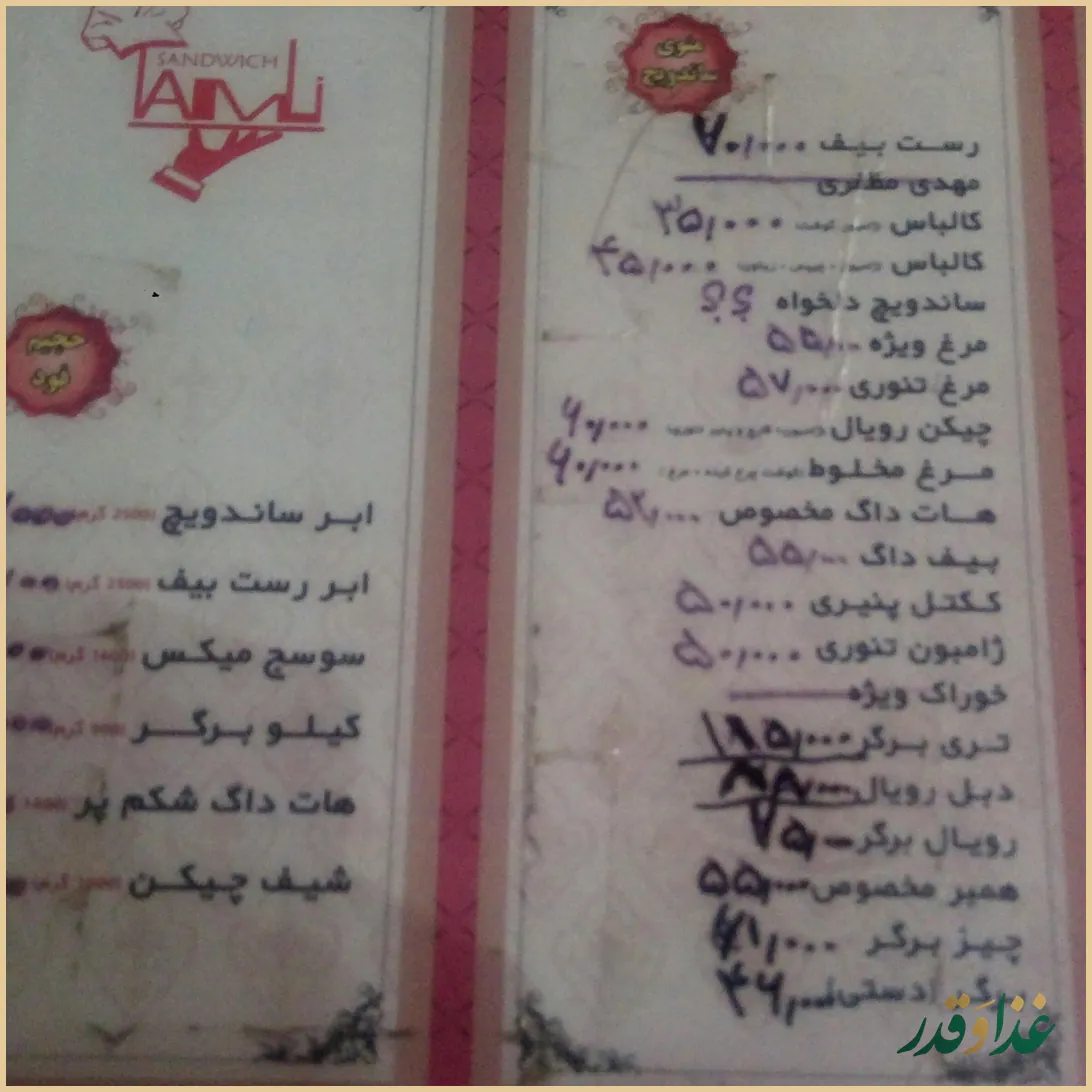 منوی
ساندویچ
رست بیف ۷۰,۰۰۰
مهدی مظفری
کالباس ۳۵,۰۰۰
کالباس ۴۵,۰۰۰
ساندویچ دلخواه ؟؟
مرغ ویژه ۵۵,۰۰۰
مرغ تنوری ۵۷,۰۰۰
چیکن رویال ۶۰,۰۰۰
مرغ مخلوط ۶۰,۰۰۰
هات داگ مخصوص ۵۲,۰۰۰
بیف داگ ۵۵,۰۰۰
ککتل پنیری ۵۰,۰۰۰
ژامبون تنوری ۵۰,۰۰۰
خوراک ویژه
تری برگر ۱۸۵,۰۰۰
دبل رویال
رویال برگر ۷۵,۰۰۰
همبر مخصوص ۵۵,۰۰۰
چیز برگر
برگر دستی ۴۶,۰۰۰
SANDWICH
TAMLI
حجیم
فود
ابر ساندویچ (2500 گرم)
ابر رست بیف (2500 گرم)
سوسج میکس (1600 گرم)
کیلو برگر (900 گرم)
هات داگ شکم پر
شیف چیکن
غذا و قدر